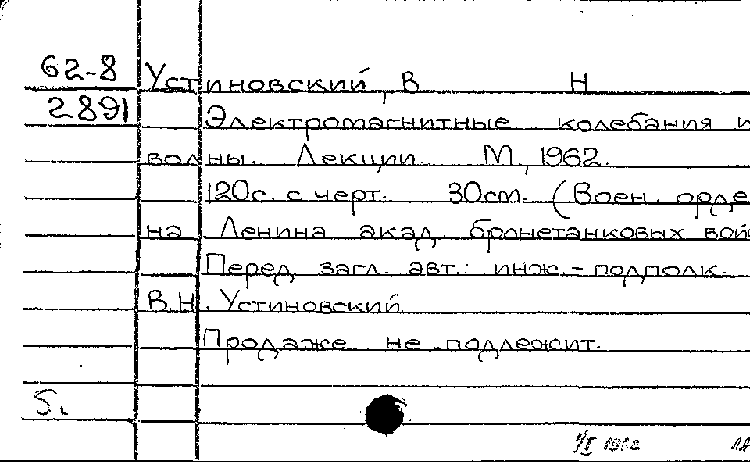 62-8 Устиновский, В Н
2891 Электромагнитные колебания и
волны. Лекции. М., 1962.
120с. с черт. 30см. (Воен. орде
на Ленина акад. бронетанковых вой
Перед загл. авт.: инж.-подполк.
В.Н. Устиновский
Продаже не подлежит.